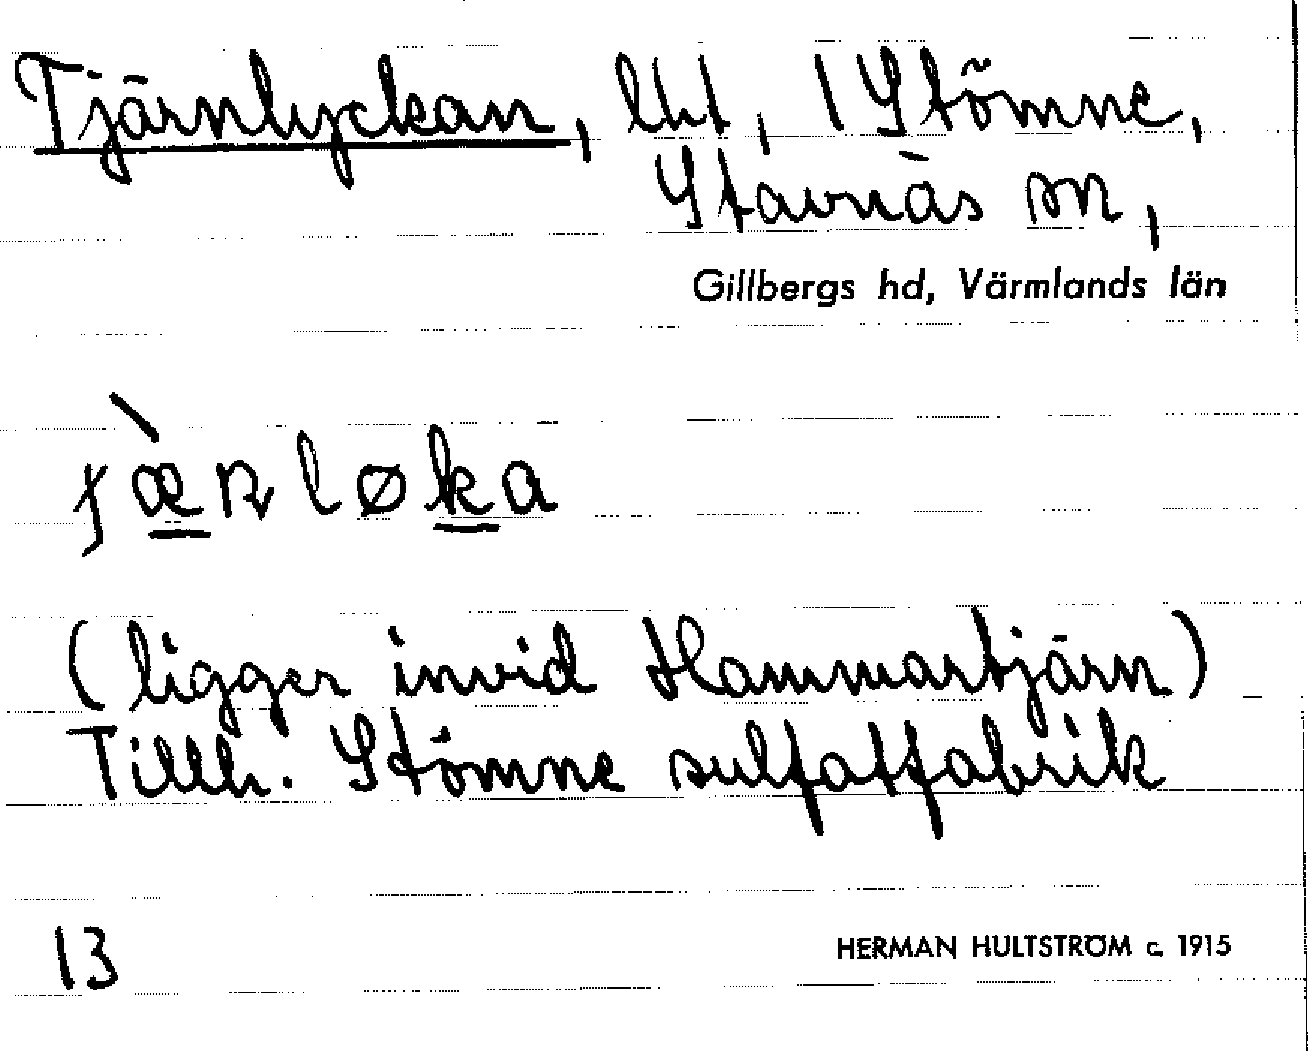 Tjärnlyckan, lht, 1 Stömne,
Stavnäs sn,
Gillbergs hd, Värmlands län
(ligger invid Hammartjärn)
Tillh. Stömne sulfatfabrik
13
HERMAN HULTSTRÖM c. 1915